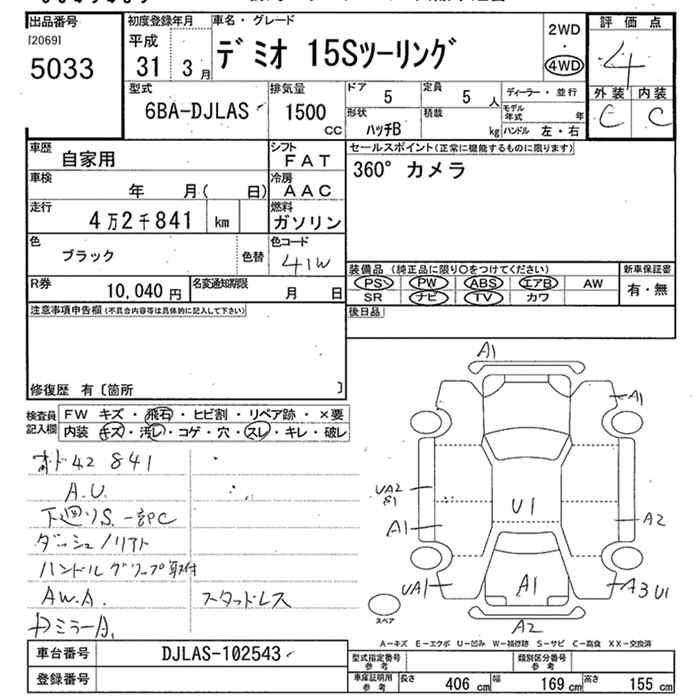 出品番号
[2069]
5033
初度登録年月
平成
31 3月
車名・グレード
デミオ 15Sツーリング
2WD
・
4WD
評価点
4
外装 内装
C C
型式
6BA-DJLAS
排気量
1500
CC
ドア
5
定員
5 人
形状
ハッチB
積載
kg
ディーラー・並行
モデル年式 年
ハンドル 左・右
車歴
自家用
シフト
FAT
車検
年 月( 日)
冷房
AAC
走行
4万2千841 km
燃料
ガソリン
色
ブラック
色替
色コード
41W
R券
10,040円
名変通知期限
月 日
セールスポイント(正常に機能するものに限ります)
360° カメラ
装備品 (純正品に限り○をつけてください)
PS PW ABS エアB AW
SR ナビ TV カワ
新車保証書
有・無
後日品
注意事項申告欄(不具合内容等は具体的に記入して下さい)
修復歴 有〔箇所 〕
検査員記入欄
FW キズ・飛石・ヒビ割・リペア跡・×要
内装 キズ・汚レ・コゲ・穴・スレ・キレ・破レ
オド42841
A.U.
下廻りS.一部C
ダッシュ/リフト
ハンドルグリップ取付
AW.A.
スタッドレス
ミラーA.
A1
A1
UA2
S1
U1
A1
A2
UA1
A1
A3 U1
A2
スペア
A-キズ E-エクボ U-凹み W-補修跡 S-サビ C-腐食 XX-交換済
車台番号
DJLAS-102543
登録番号
型式指定番号
参考
類別区分番号
参考
車庫証明用
参考
長さ 406 cm
幅 169 cm
高さ 155 cm